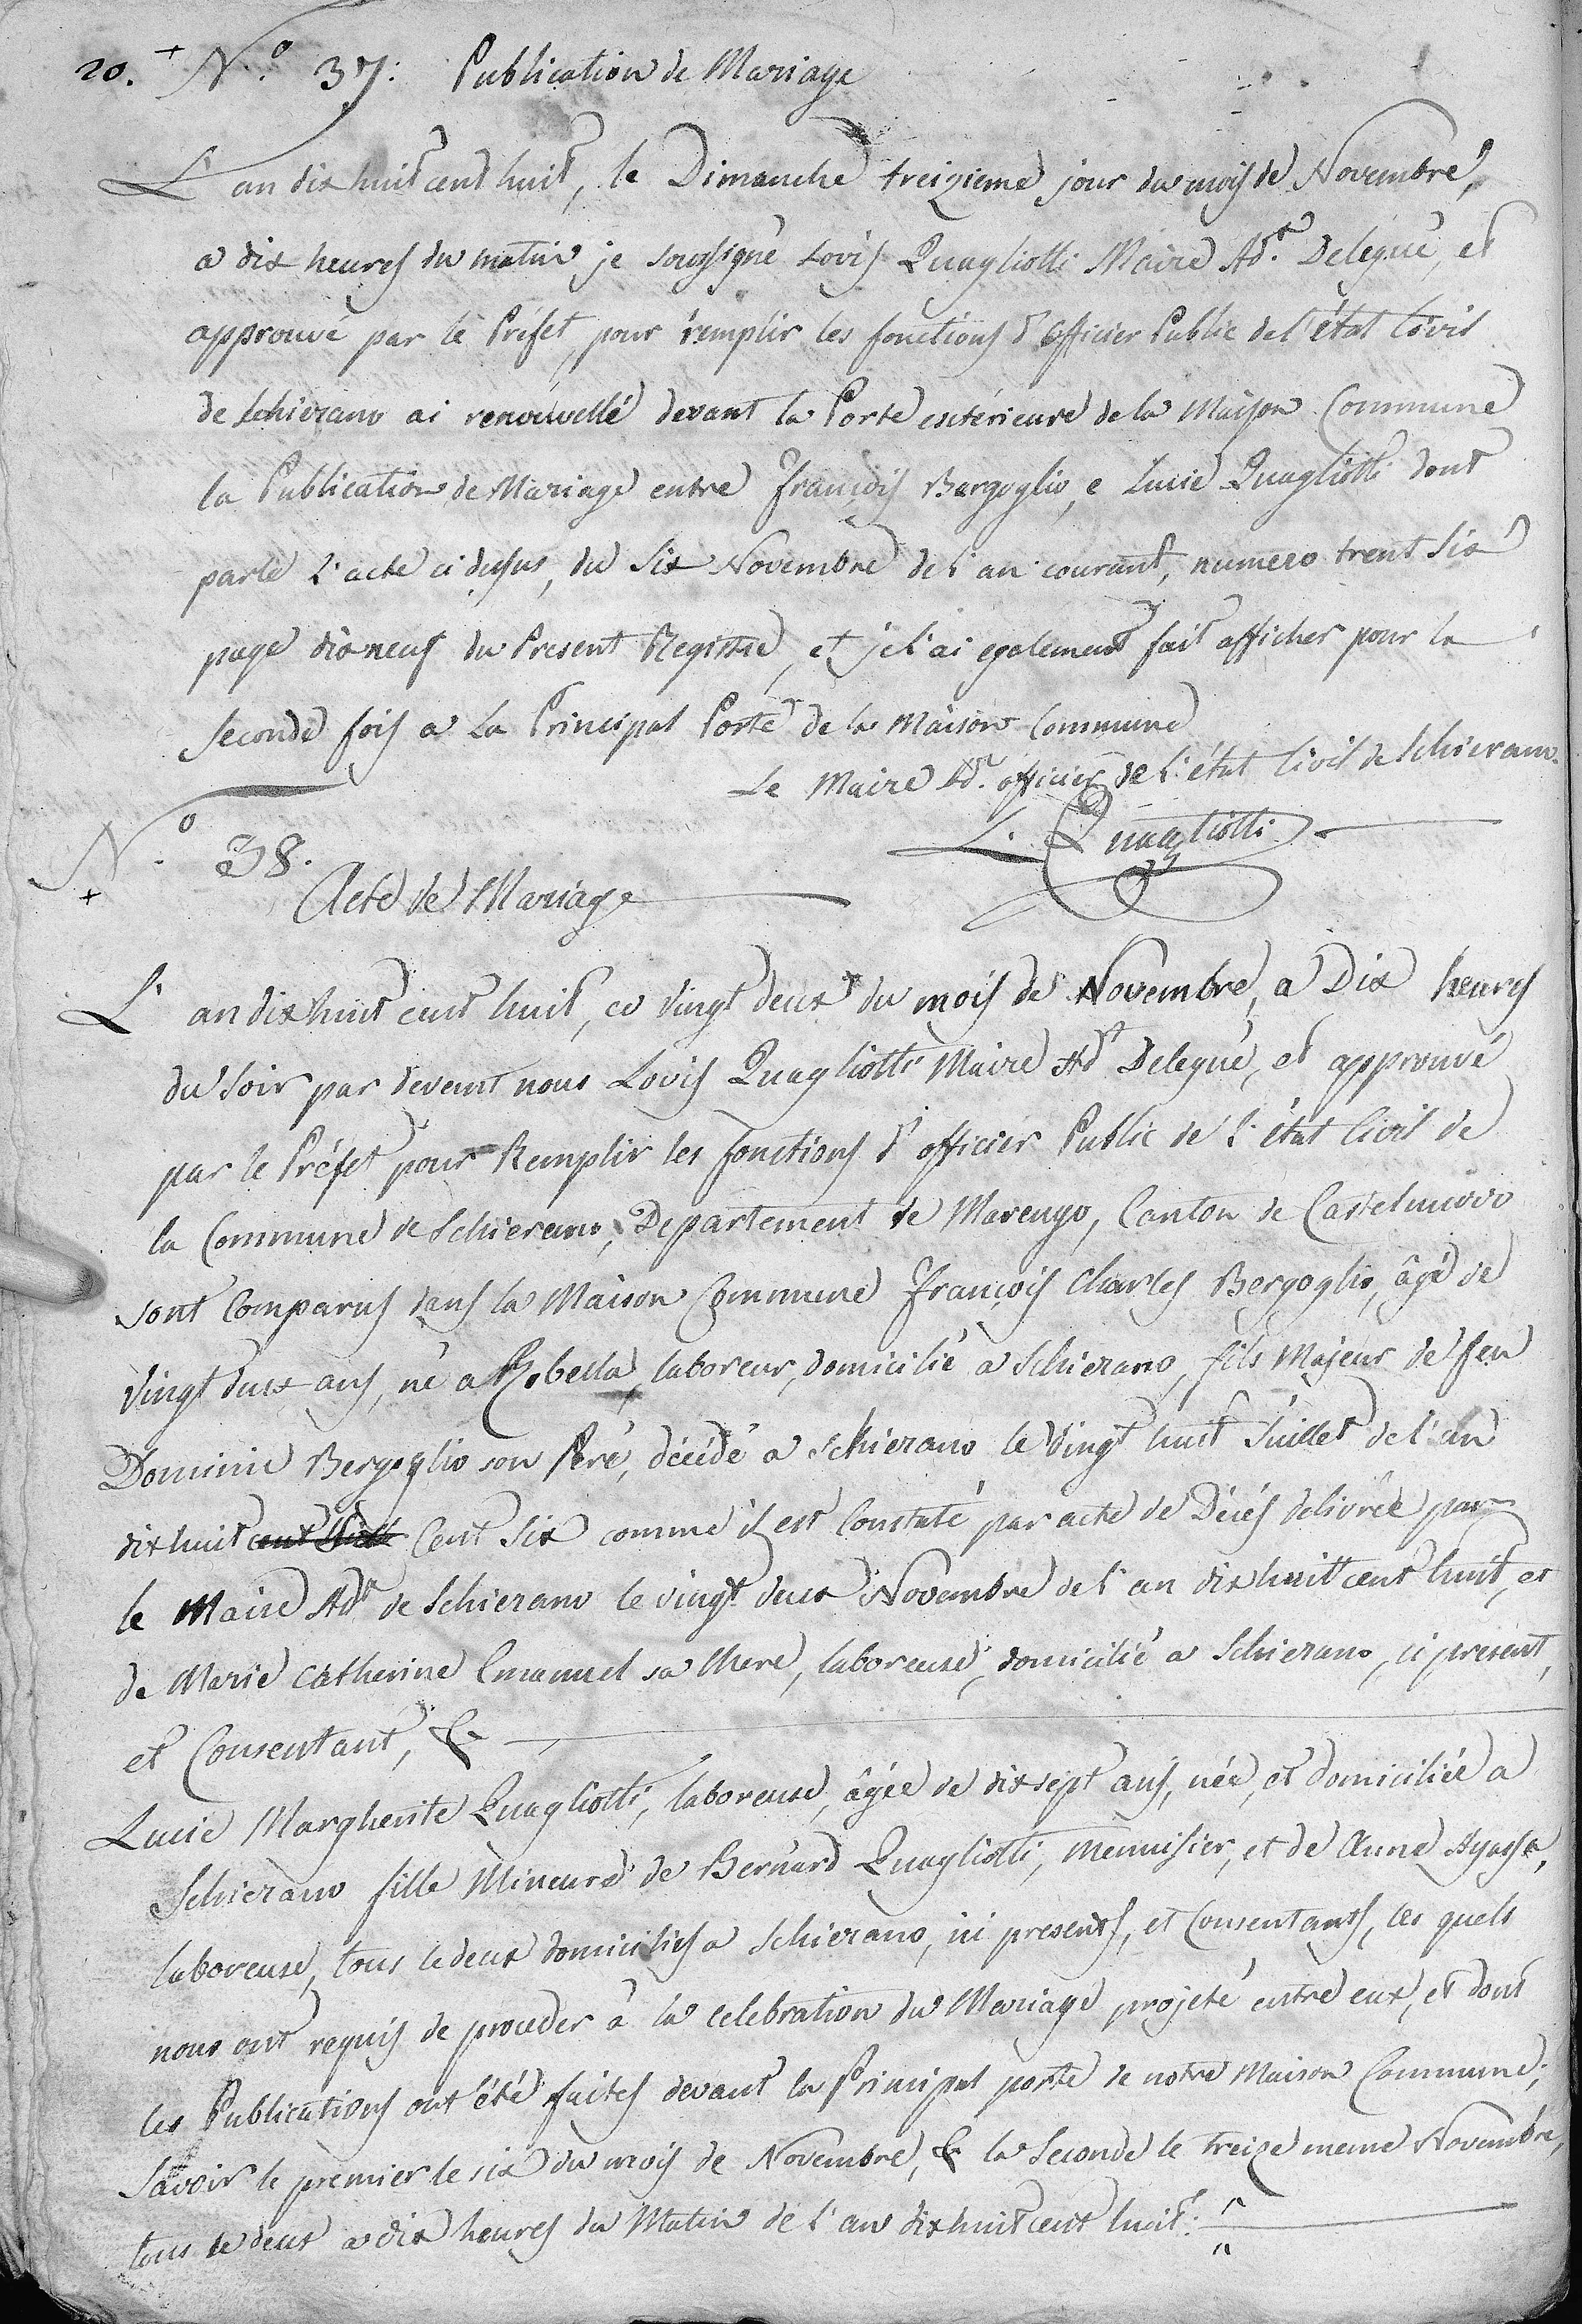 20. + N.o 37: Publication de Mariage
L'an dix huit cent huit, le Dimanche treizieme jour du mois de Novembre,
a dix heures du matin je soussigné Lovis Quagliotti Maire Ad.t Delegué, et
approuvé par le Préfet, pour remplir les fonctions d'officier Public de l'état Civil
de Schierano ai renouvellé devant la Porte extérieure de la Maison Commune
la Publication de Mariage entre François Bergoglio, e Lucie Quagliotti dont
parle l'acte ci dessus, du Six Novembre de l'an courant, numero trent Six
page dix neuf du Present Registre, et je l'ai egalement fait afficher pour la
Seconde fois a La Principal Porte de la Maison Commune
Le Maire Ad.t officier de l'état Civil de Schierano.
L. Quagliotti
N.o 38.
+ Acte de Mariage
L'an dix huit cent huit, ce vingt deux du mois de Novembre, a Dix heures
du Soir par devant nous Lovis Quagliotti Maire Ad.t Delegué, et approuvé
par le Préfet pour Remplir les fonctions d'officier Public de l'état Civil de
la Commune de Schierano, Departement de Marengo, Canton de Castelnuovo
sont Comparus dans la Maison Commune François Charles Bergoglio, âgé de
vingt deux ans, né a Robella, laboreur, domicilié a Schierano, fils Majeur de feu
Dominic Bergoglio son Peré, décédé a Schierano le vingt huit Juillet de l'an
dix huit cent Cent Six comme il est Constaté par acte de Décés delivrée par
le Maire Ad.t de Schierano le vingt deux Novembre de l'an dix huitt cent huit, et
de Marie Catherine Emanuel sa Mere, laboreuse, domicilié a Schierano, ci present,
et Consentant, &
Lucie Margherite Quagliotti, laboreuse, âgée de dix sept ans, née, et domiciliée a
Schierano fille Mineure de Bernard Quagliotti, Menuisier, et de Anne Ayassa,
laboreuse, tous le deux domiciliés a Schierano, ici presents, et Consentants, les quels
nous ont requis de proceder à la celebration du Mariage projeté entre eux, et dont
les Publications ont été faites devant la Principal porte de notre Maison Commune;
Savoir le premier le six du mois de Novembre, & la Seconde le treize meme Novembre,
tous le deux a dix heures du Matin de l'an dix huit cent huit: